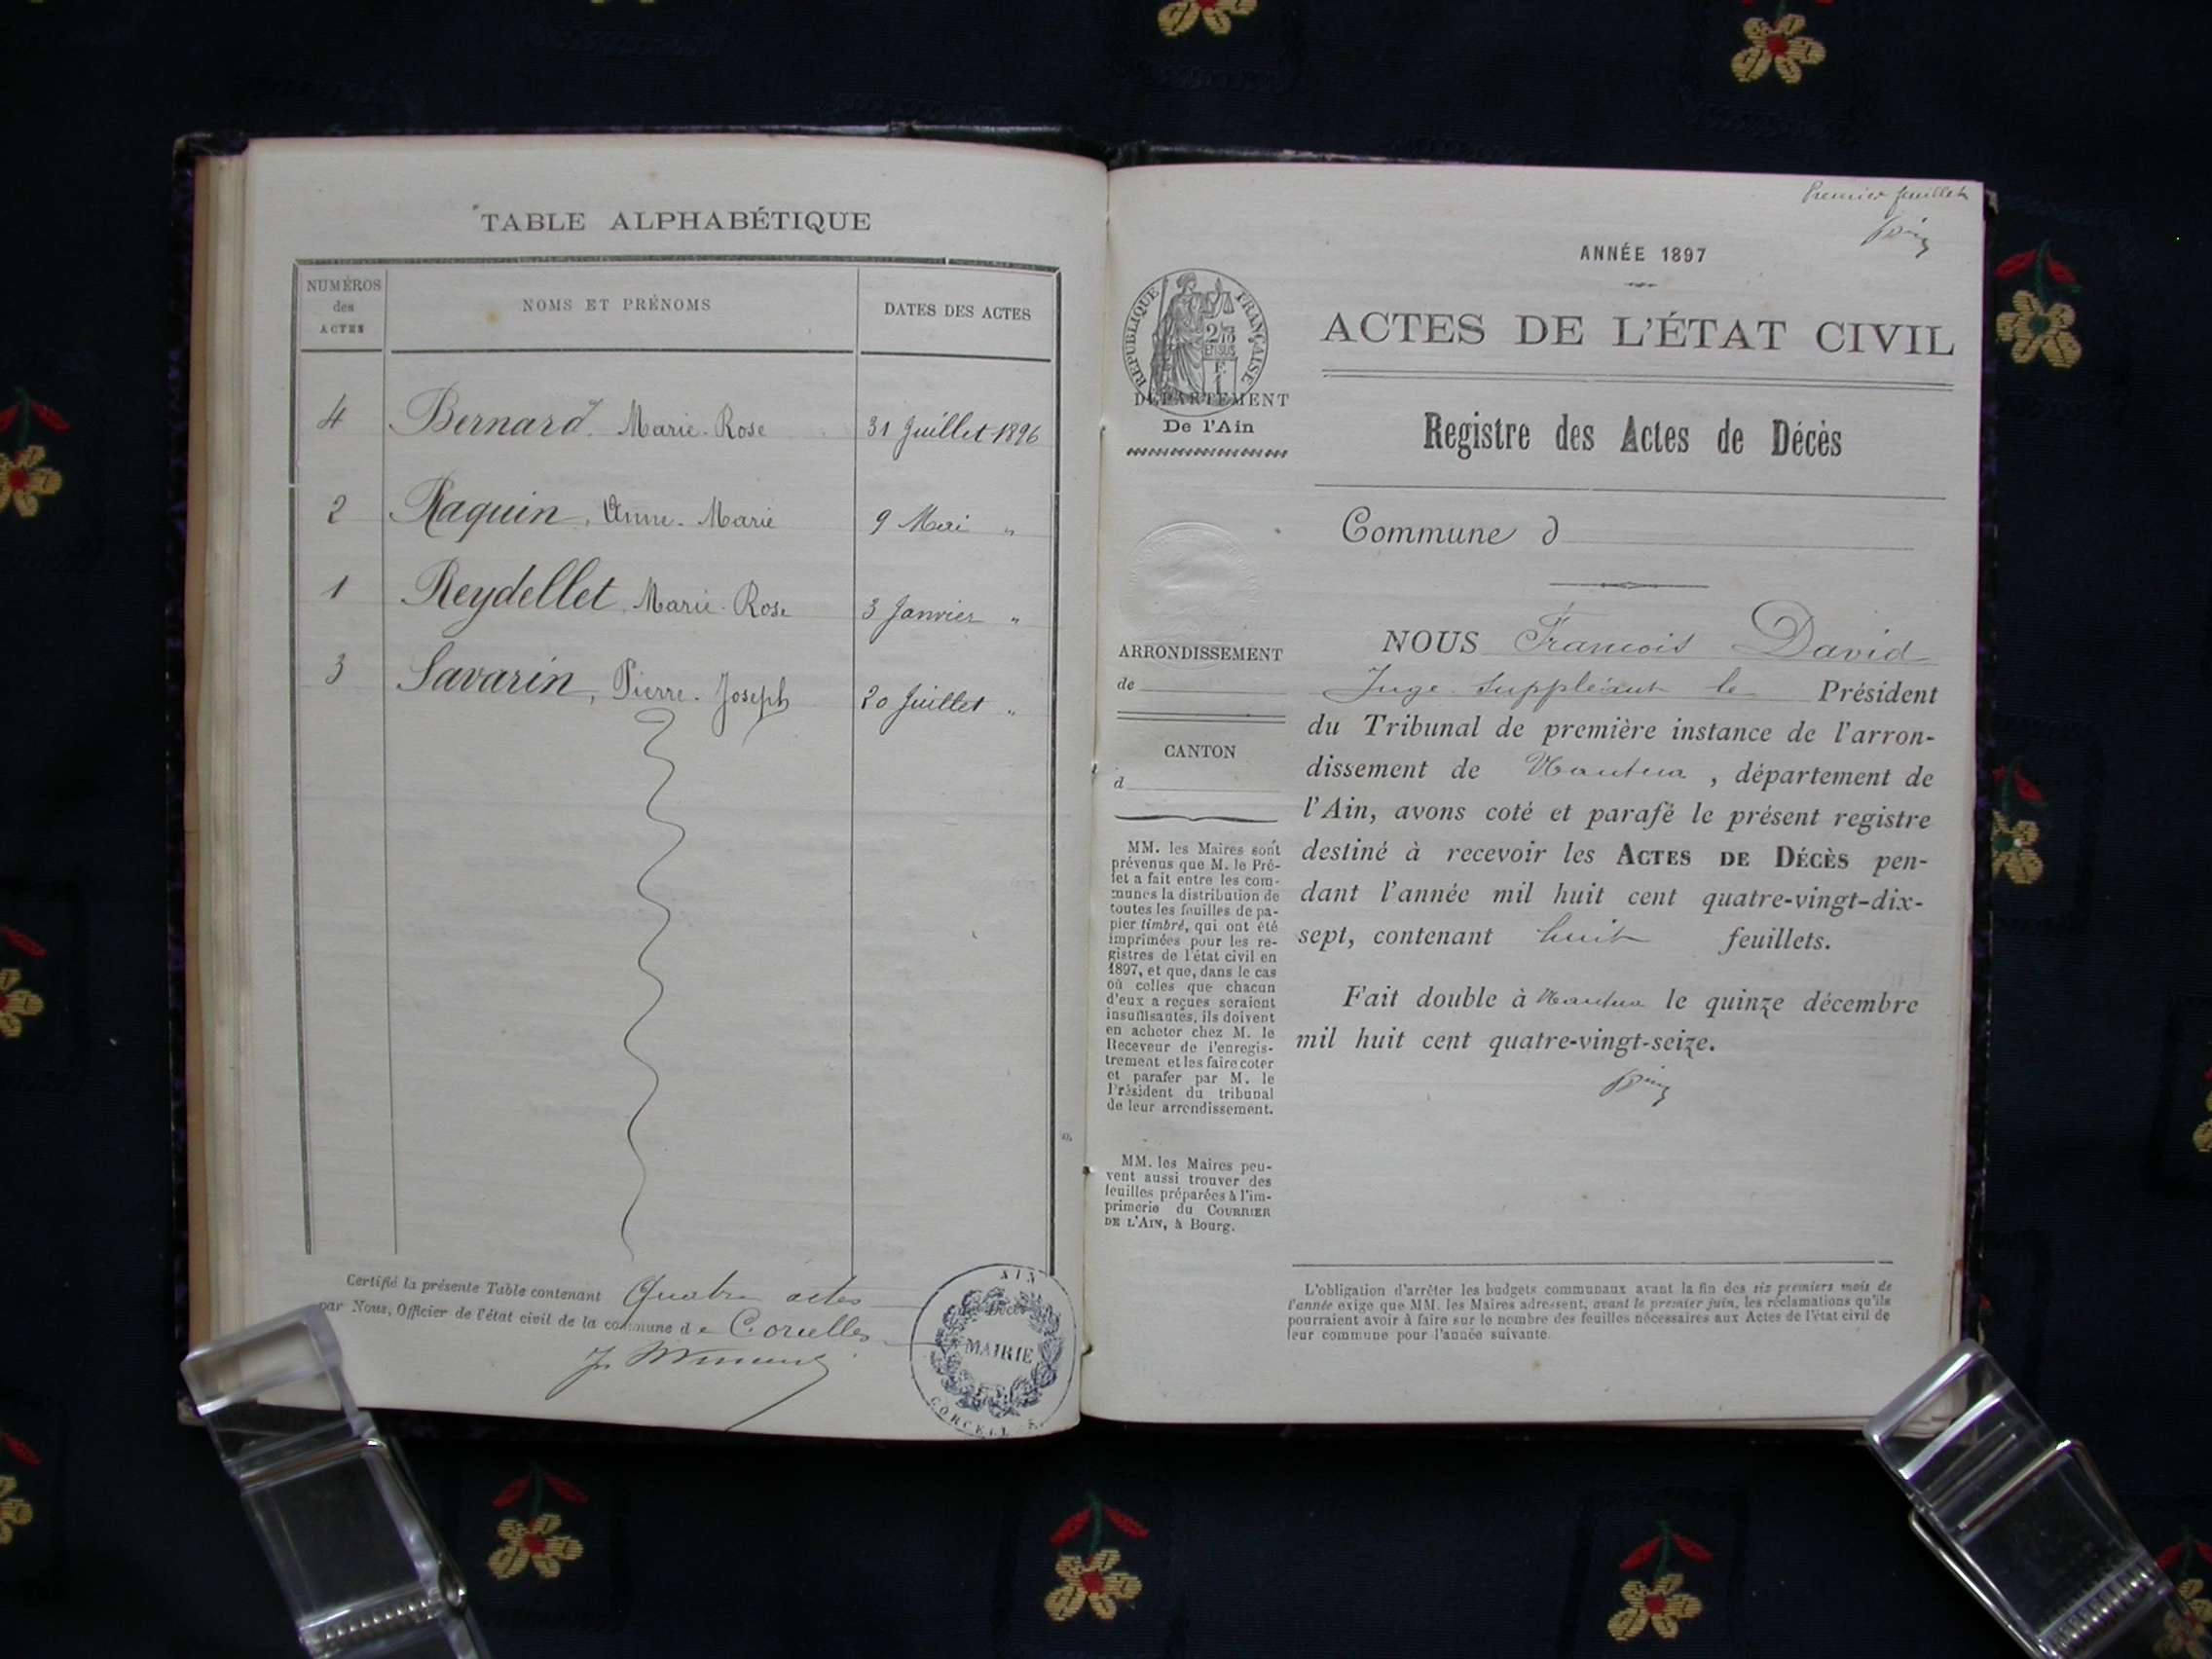 TABLE ALPHABÉTIQUE
NUMÉROS
des
ACTES
NOMS ET PRÉNOMS
DATES DES ACTES
4 Bernard. Marie-Rose 31 Juillet 1896
2 Raquin, Anne-Marie 9 Mai "
1 Reydellet, Marie-Rose 3 Janvier "
3 Savarin, Pierre-Joseph 20 Juillet "
Certifié la présente Table contenant Quatre actes
par Nous, Officier de l'état civil de la commune de Corcelles
AIN
MAIRIE
CORCELLES
Premier feuillet
ANNÉE 1897
ACTES DE L'ÉTAT CIVIL
RÉPUBLIQUE FRANÇAISE
2/10
EN SUS
DÉPARTEMENT
De l'Ain
Registre des Actes de Décès
Commune d
ARRONDISSEMENT
de
CANTON
d
MM. les Maires sont
prévenus que M. le Pré-
fet a fait entre les com-
munes la distribution de
toutes les feuilles de pa-
pier timbré, qui ont été
imprimées pour les re-
gistres de l'état civil en
1897, et que, dans le cas
où celles que chacun
d'eux a reçues seraient
insuffisantes, ils doivent
en acheter chez M. le
Receveur de l'enregis-
trement et les faire coter
et parafer par M. le
Président du tribunal
de leur arrondissement.
MM. les Maires peu-
vent aussi trouver des
feuilles préparées à l'im-
primerie du COURRIER
DE L'AIN, à Bourg.
NOUS François David
Juge suppléant le Président
du Tribunal de première instance de l'arron-
dissement de Nantua, département de
l'Ain, avons coté et parafé le présent registre
destiné à recevoir les ACTES DE DÉCÈS pen-
dant l'année mil huit cent quatre-vingt-dix-
sept, contenant huit feuillets.
Fait double à Nantua le quinze décembre
mil huit cent quatre-vingt-seize.
L'obligation d'arrêter les budgets communaux avant la fin des six premiers mois de
l'année exige que MM. les Maires adressent, avant le premier juin, les réclamations qu'ils
pourraient avoir à faire sur le nombre des feuilles nécessaires aux Actes de l'état civil de
leur commune pour l'année suivante.